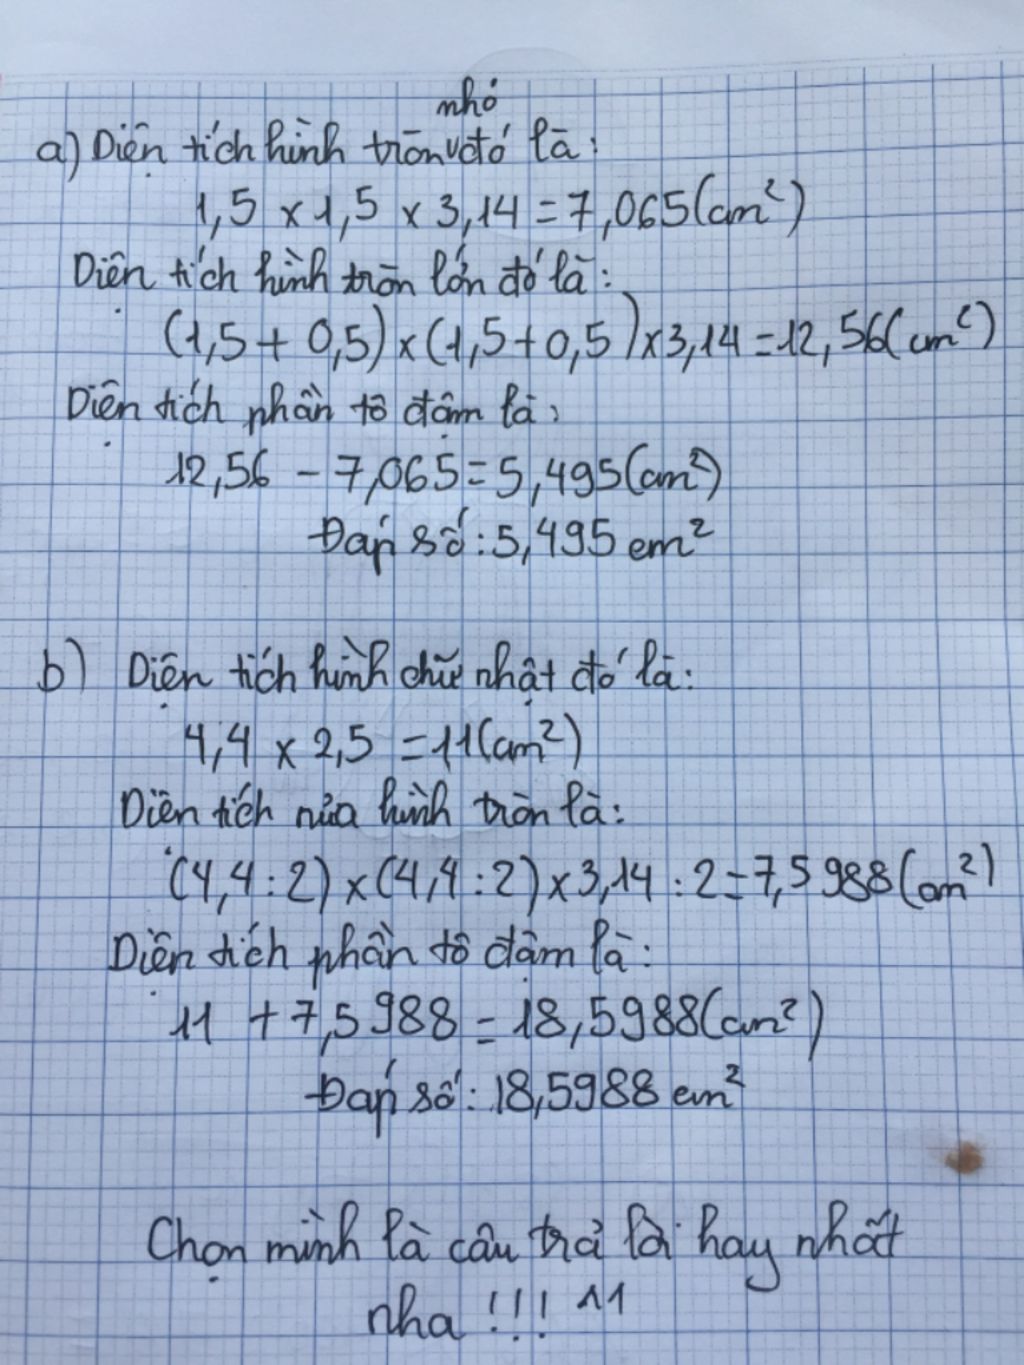 nhỏ
a) Diện tích hình tròn đó là:
1,5 x 1,5 x 3,14 = 7,065(cm²)
Diện tích hình tròn lớn đó là:
(1,5 + 0,5) x (1,5 + 0,5) x 3,14 = 12,56(cm²)
Diện tích phần tô đậm là:
12,56 - 7,065 = 5,495(cm²)
Đáp số: 5,495 cm²
b) Diện tích hình chữ nhật đó là:
4,4 x 2,5 = 11(cm²)
Diện tích nửa hình tròn là:
(4,4 : 2) x (4,4 : 2) x 3,14 : 2 = 7,5988(cm²)
Diện tích phần tô đậm là:
11 + 7,5988 = 18,5988(cm²)
Đáp số: 18,5988 cm²
Chọn mình là câu trả lời hay nhất
nha !!! ^^